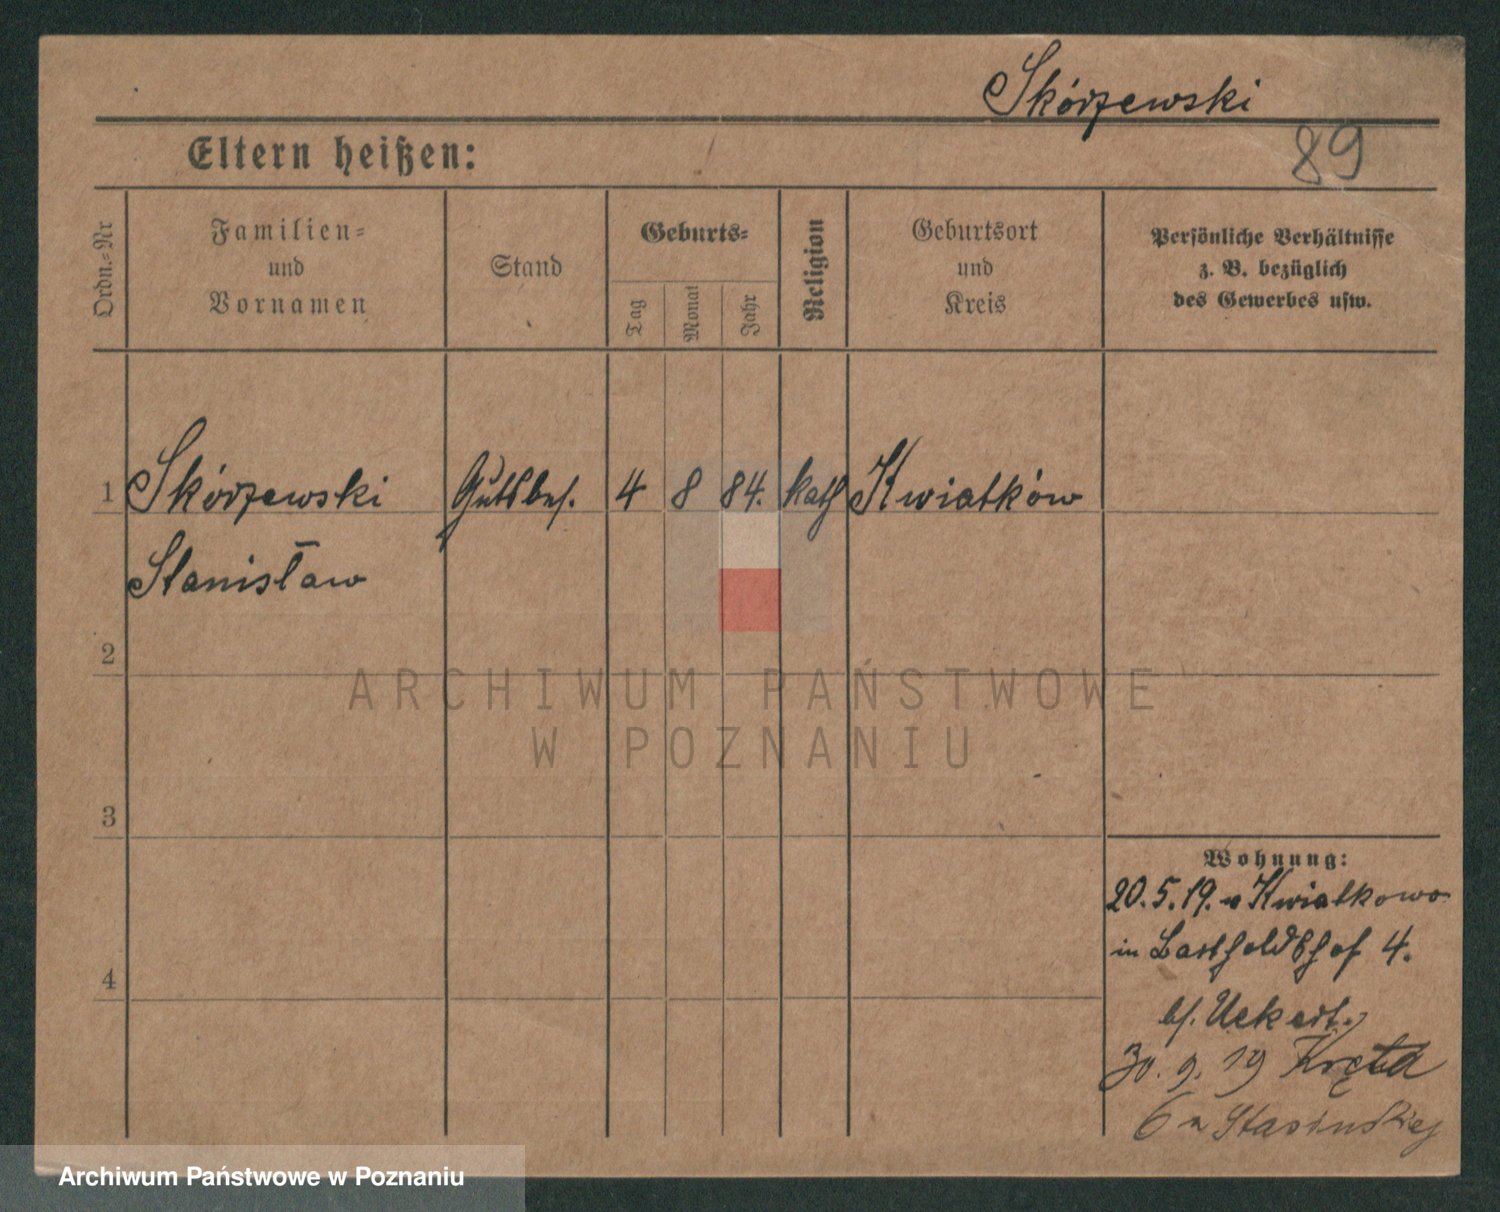 Skórzewski
89
Eltern heißen:
Ordn.=Nr
Familien=
und
Vornamen
Stand
Geburts=
Tag
Monat
Jahr
Religion
Geburtsort
und
Kreis
Persönliche Verhältnisse
z. B. bezüglich
des Gewerbes usw.
1 Skórzewski Gutsbes. 4 8 84. kath Kwiatków
Stanisław
2
ARCHIWUM PAŃSTWOWE
W POZNANIU
3
Wohnung:
20.5.19. v Kwiatkowo
in Bartholdshof 4.
4
bs. Ueckert.
30. 9. 19 Kręta
6 a Stasinskiej
Archiwum Państwowe w Poznaniu